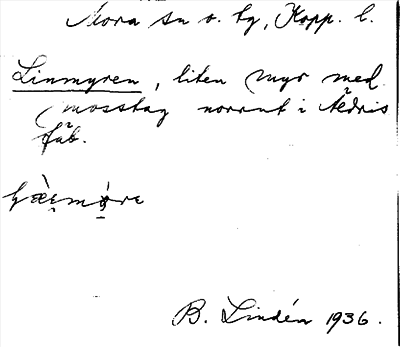 Mora sn o. tg, Kopp. l.
Linmyren, liten myr med
mosstag norrut i Nedris
fäb.
B. Lindén 1936.